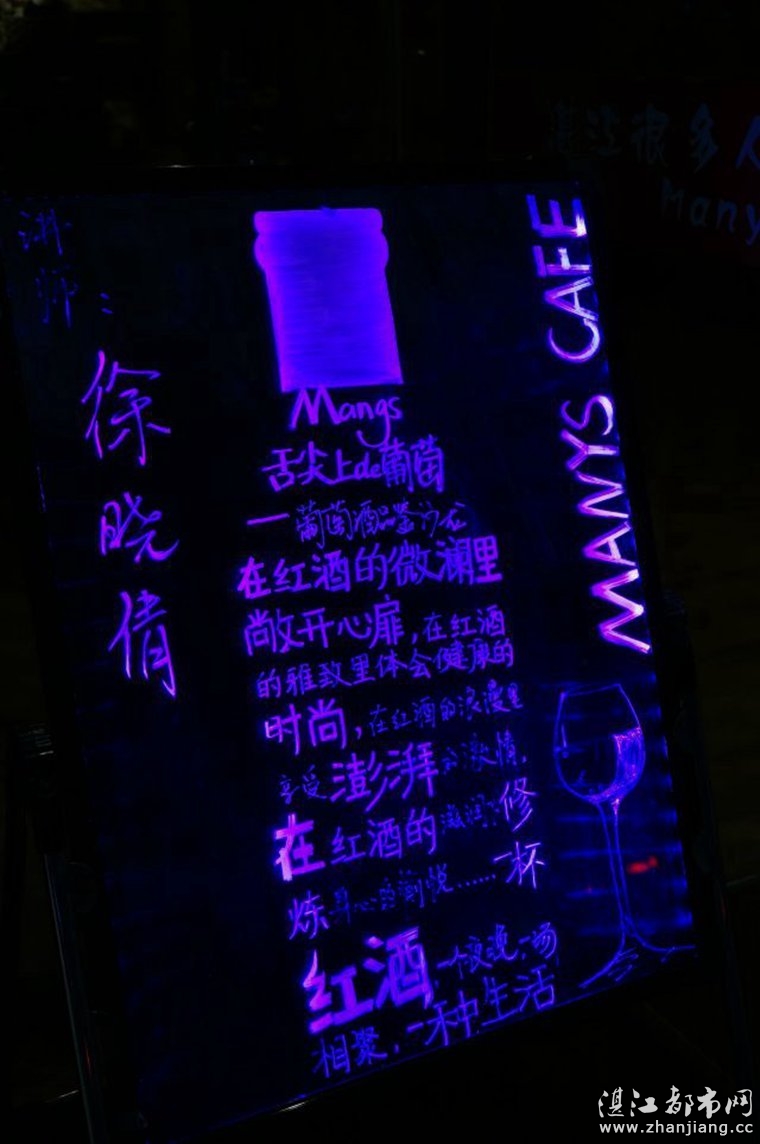 很多人
Many
讲师：
徐晓倩
MANYS CAFE
Mangs
舌尖上de葡萄
一葡萄酒品鉴沙龙
在红酒的微澜里
敞开心扉,在红酒
的雅致里体会健康的
时尚,在红酒的浪漫里
享受澎湃的激情,
在红酒的滋润下修
炼身心的愉悦……一杯
红酒,一个夜晚,一场
相聚,一种生活
湛江都市网
www.zhanjiang.cc